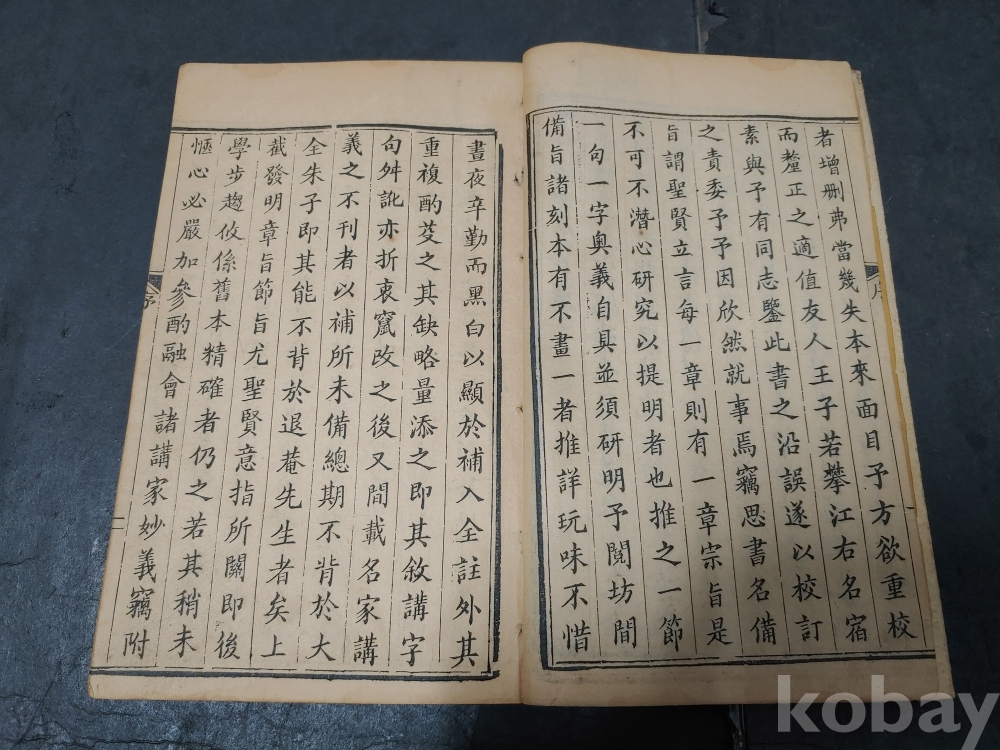 者增删弗當幾失本來面目予方欲重校
而釐正之適值友人王子若攀江右名宿
素與予有同志鑒此書之沿誤遂以校訂
之責委予予因欣然就事焉竊思書名備
旨謂聖賢立言每一章則有一章宗旨是
不可不潛心研究以提明者也推之一節
一句一字奧義自具並須研明予閱坊間
備旨諸刻本有不畫一者推詳玩味不惜
序
晝夜辛勤而黑白以顯於補入全註外其
重複酌芟之其缺略量添之即其敘講字
句舛訛亦折衷竄改之後又間載名家講
義之不刊者以補所未備總期不背於大
全朱子即其能不背於退菴先生者矣上
截發明章旨節旨尤聖賢意指所關即後
學步趨攸係舊本精確者仍之若其稍未
愜心必嚴加參酌融會諸講家妙義竊附
序
一
kobay